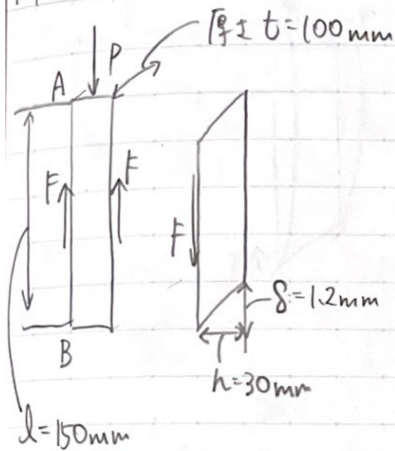 厚さ t=100mm
A P
F F
F
δ=1.2mm
B
h=30mm
l=150mm